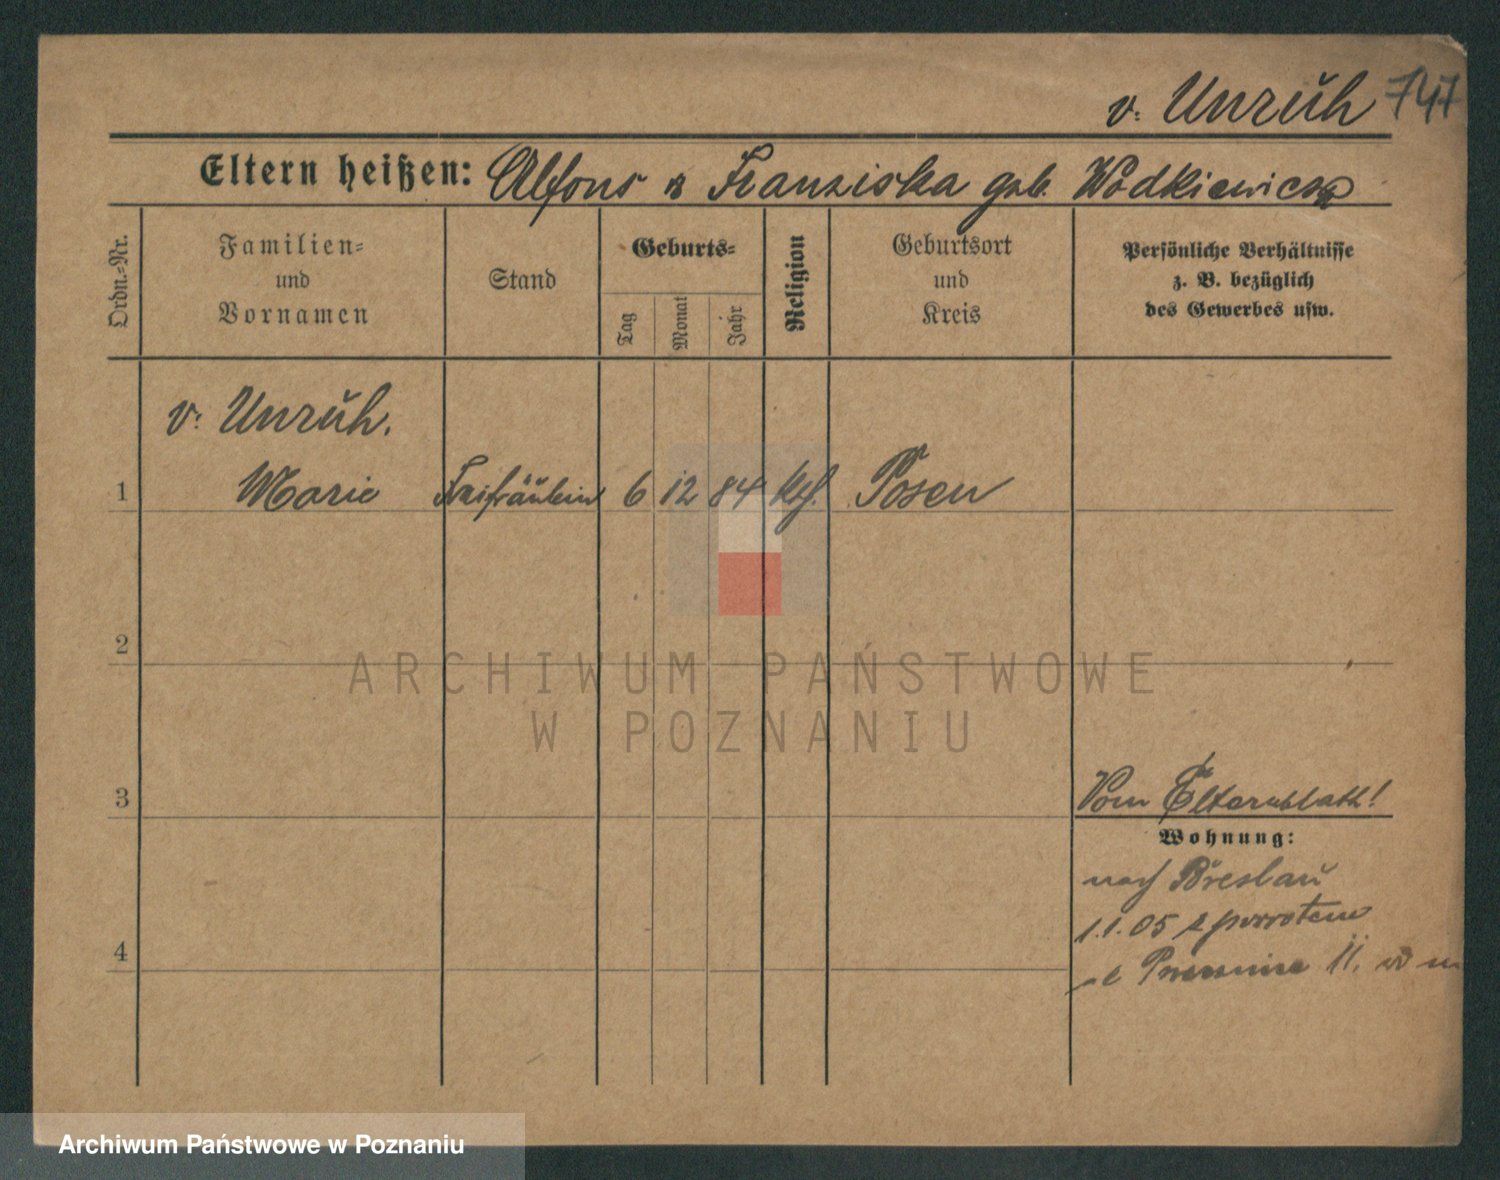 v. Unruh 747
Eltern heißen: Alfons & Franziska geb. Wodkiewicz
Ordn.-Nr.
Familien-
und
Vornamen
Stand
Geburts-
Tag
Monat
Jahr
Religion
Geburtsort
und
Kreis
Persönliche Verhältnisse
z. B. bezüglich
des Gewerbes usw.
v. Unruh.
1 Marie Freifräulein 6 12 84 kth. Posen
2
3
4
Vom Elternblatt!
Wohnung:
nach Breslau
1.1.05 z powrotem
II.
ARCHIWUM PAŃSTWOWE
W POZNANIU
Archiwum Państwowe w Poznaniu